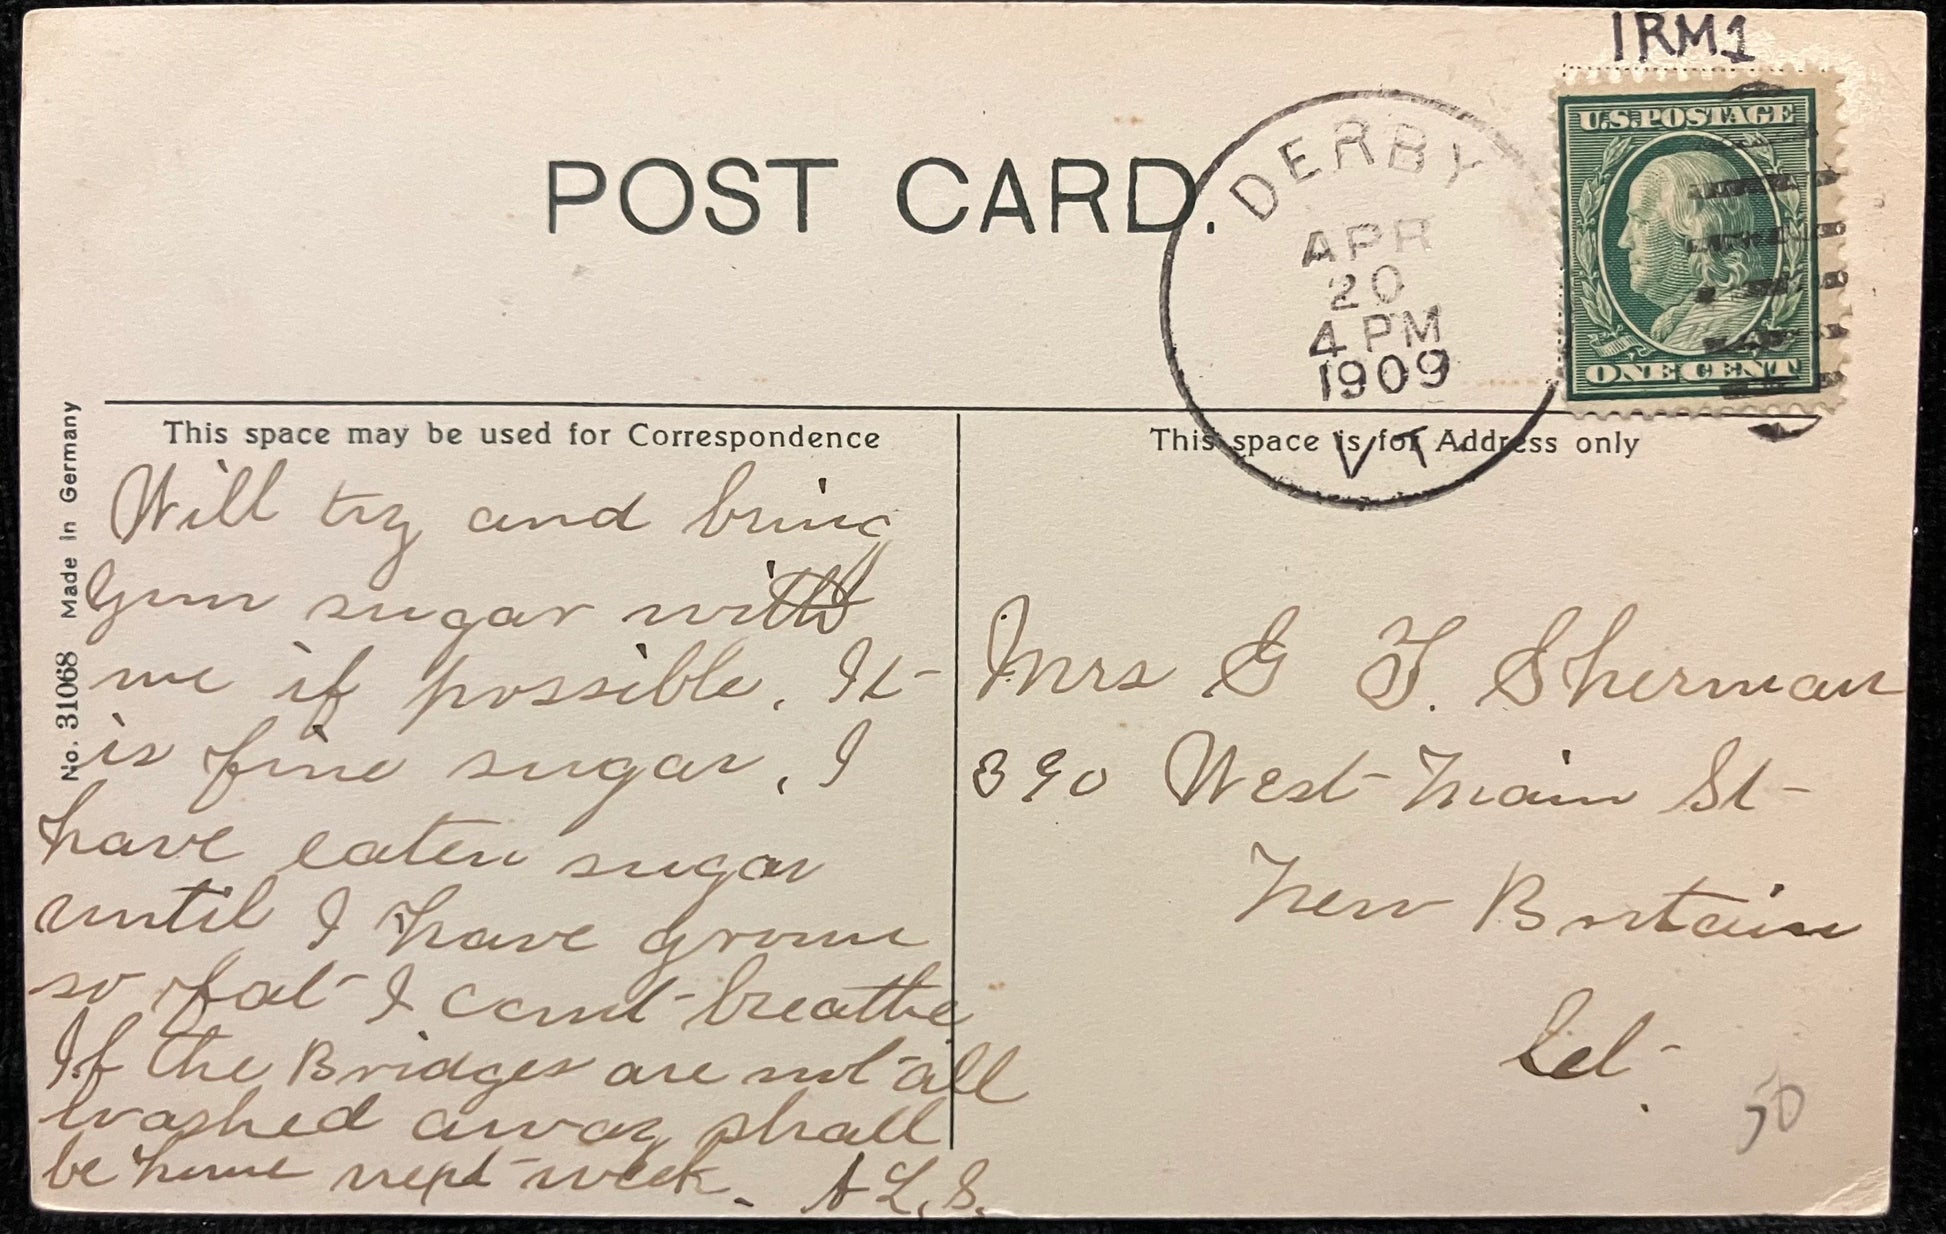 IRM1
U.S. POSTAGE
ONE CENT
POST CARD.
DERBY
APR
20
4 PM
1909
VT
No. 31068 Made in Germany
This space may be used for Correspondence
Will try and bring
Gum sugar with
me if possible. It
is fine sugar, I
have eaten sugar
until I have grown
so fat I cant breathe
If the Bridges are not all
washed away shall
be home next week.
A L. S.
This space is for Address only
Mrs G F. Sherman
390 West Main St
New Britain
Ct
50